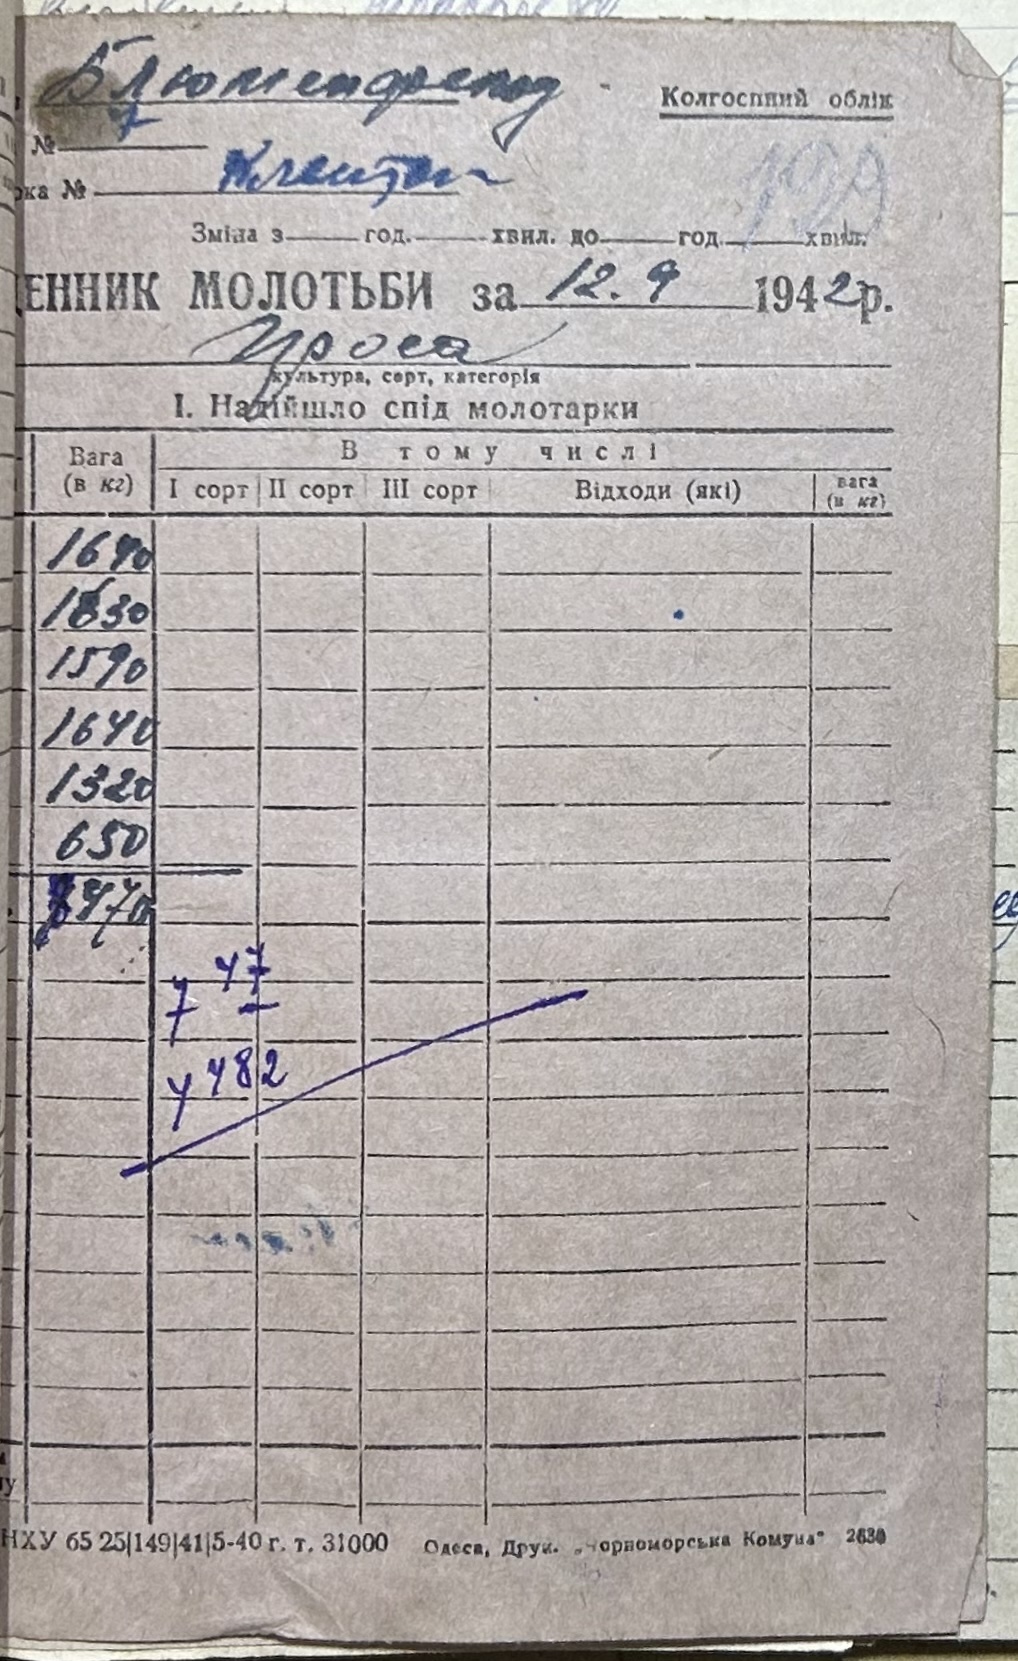 Блюменфельд
Колгоспний облік
№ 7
рка № Клейтон
129
Зміна з год. хвил. до год. хвил.
ЕННИК МОЛОТЬБИ за 12.9 1942 р.
Проса
культура, сорт, категорія
I. Надійшло спід молотарки
Вага (в кг) В тому числі
I сорт II сорт III сорт Відходи (які) вага (в кг)
1640
1630
1590
1640
1320
650
8470
7 47
7 482
НХУ 65 25|149|41|5-40 г. т. 31000 Одеса, Друк. „Чорноморська Комуна" 2630